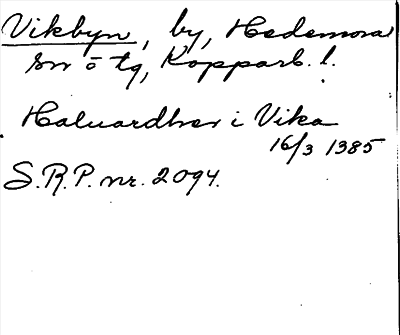 Vikbyn, by, Hedemora
sn o tg, Kopparb. l.
Haluardher i Vika
16/3 1385
S.R.P. nr. 2094.